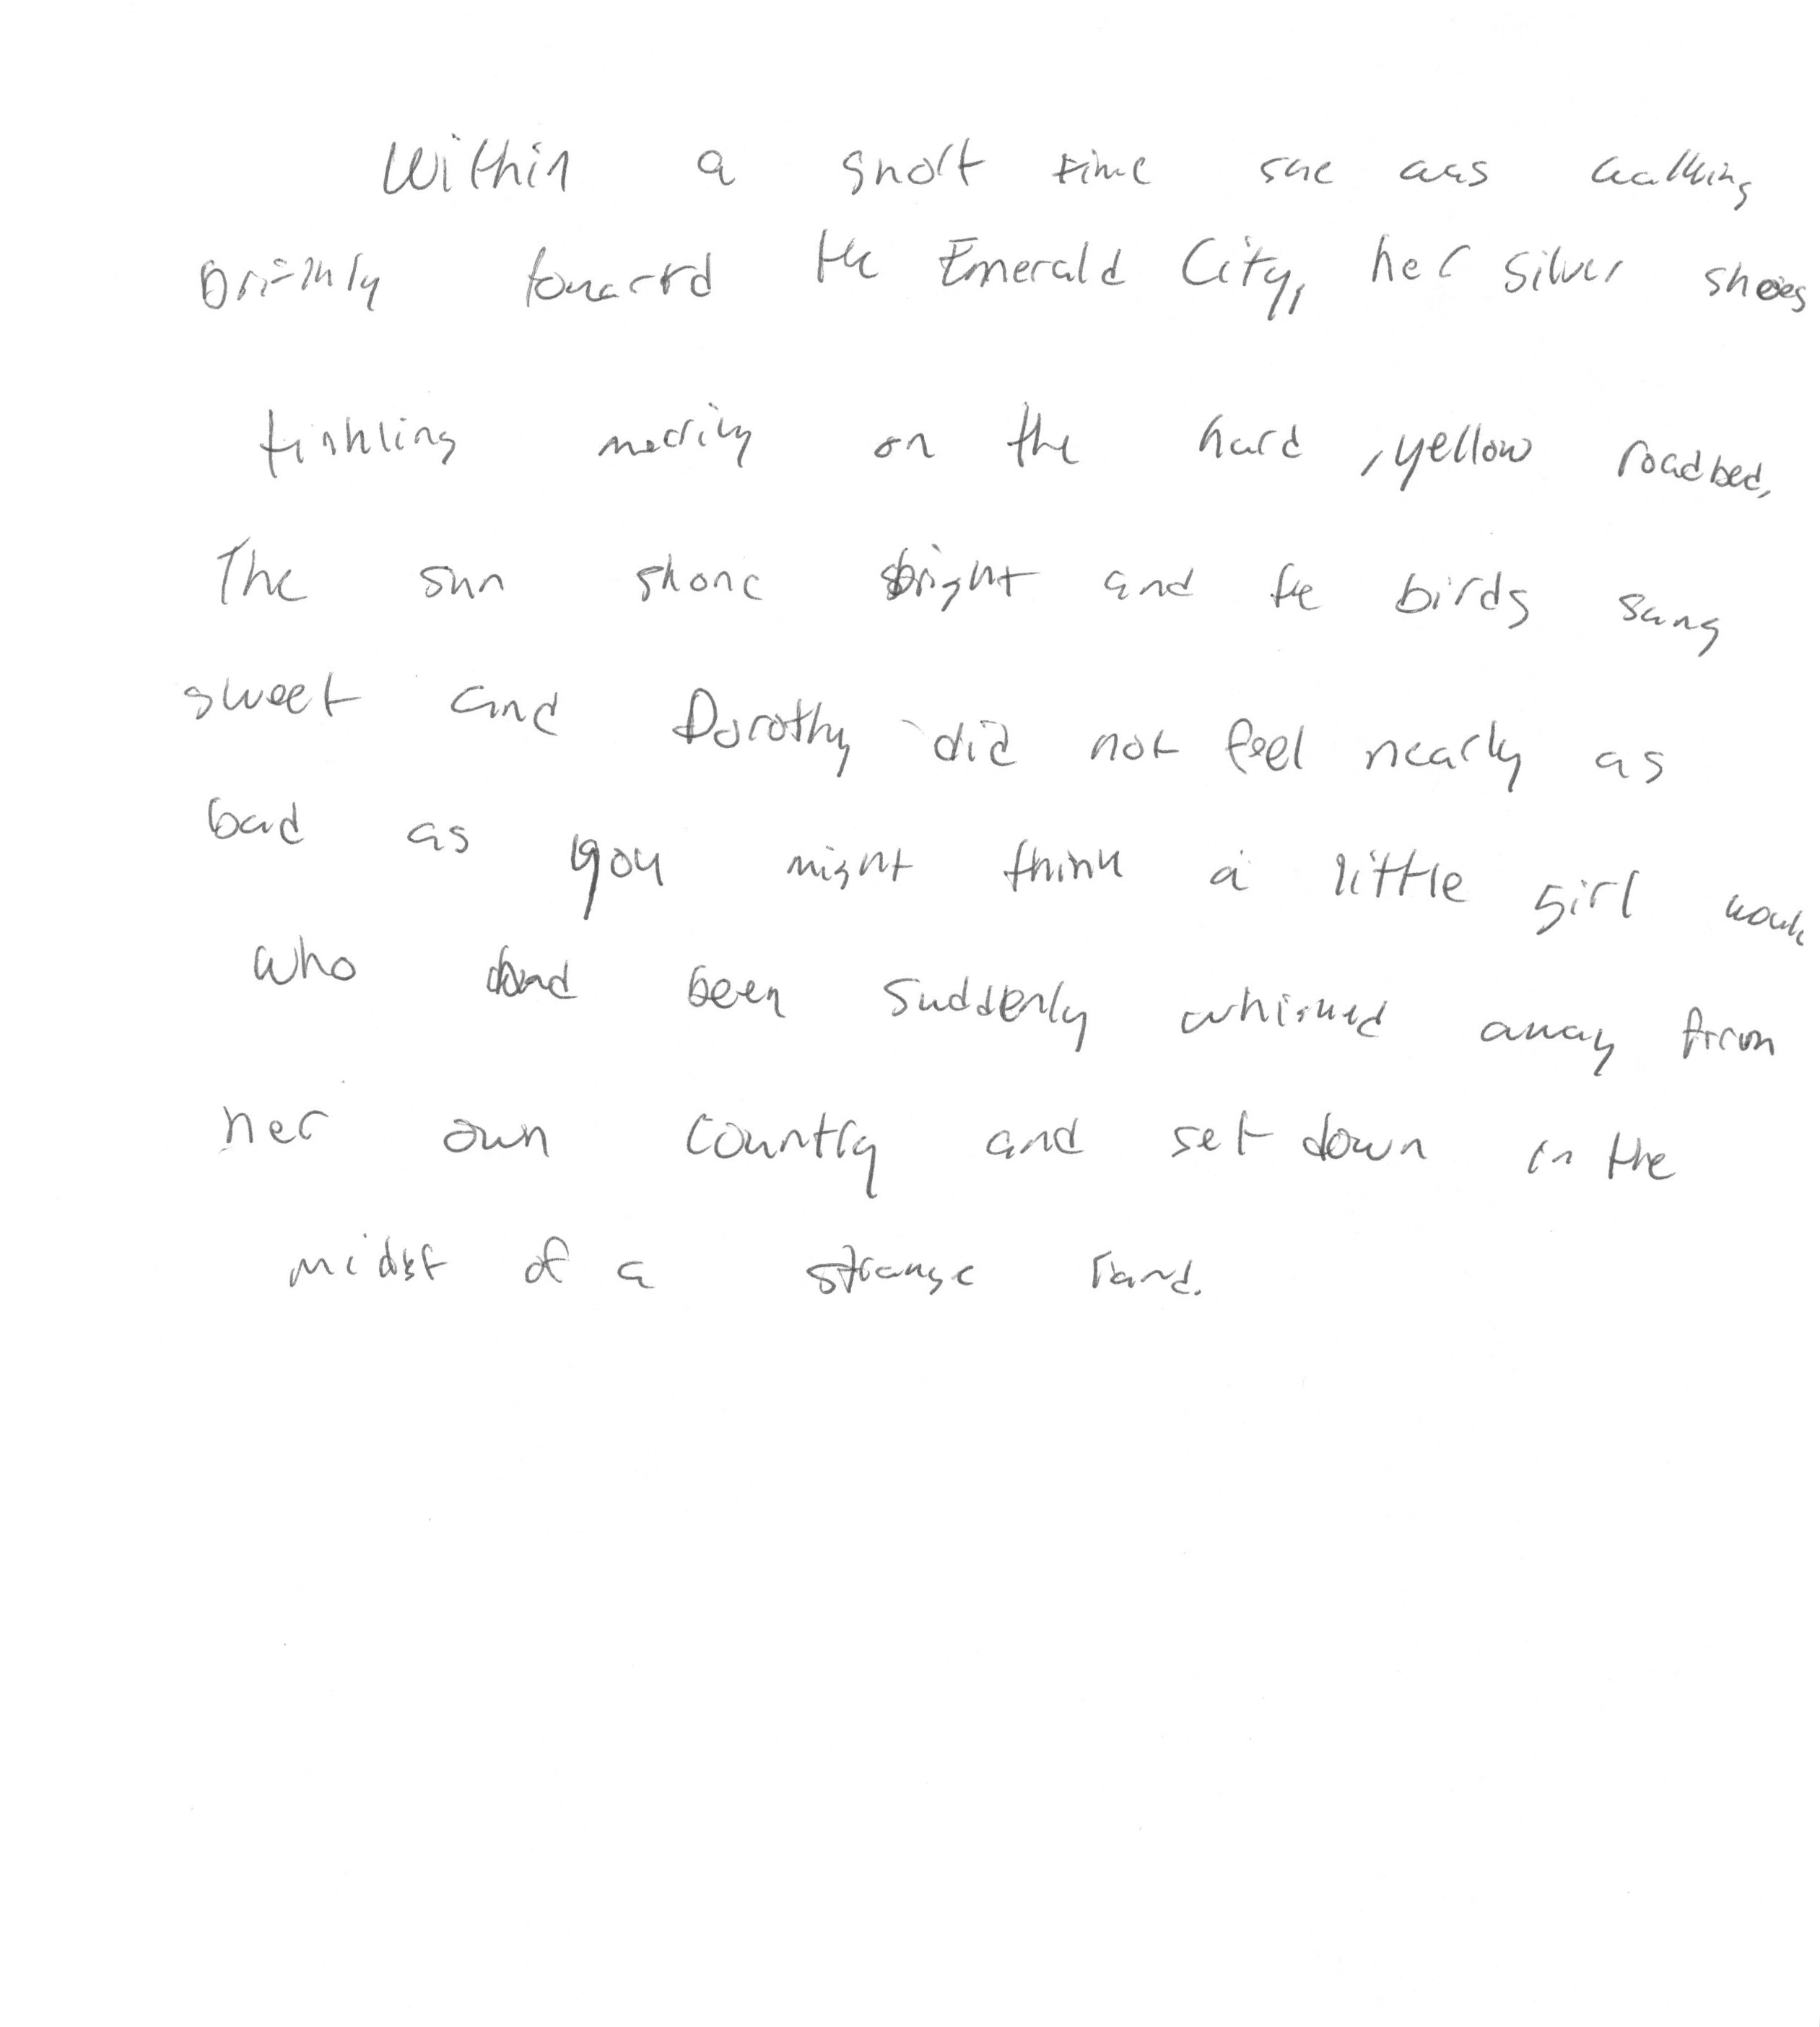 Within a short time she was walking
briskly toward the Emerald City, her silver shoes
tinkling merrily on the hard, yellow roadbed.
The sun shone bright and the birds sang
sweet and Dorothy did not feel nearly as
bad as you might think a little girl would
who had been suddenly whisked away from
her own country and set down in the
midst of a strange land.